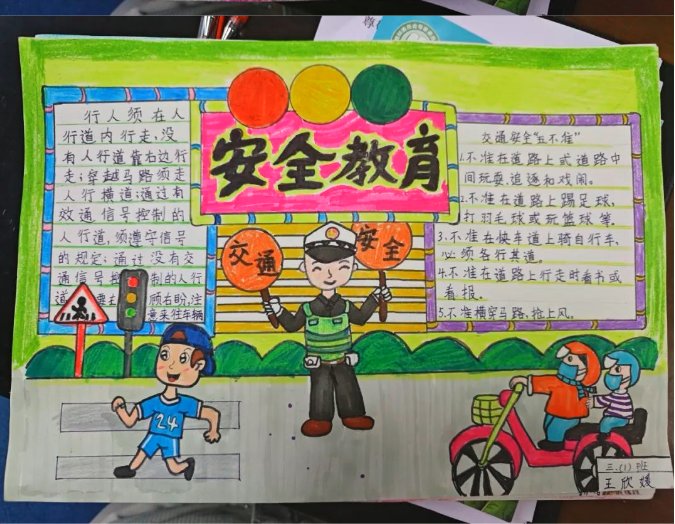 安全教育
行人须在人
行道内行走,没
有人行道靠右边行
走;穿越马路须走
人行横道;通过有
交通信号控制的
人行道,须遵守信号
的规定;通过没有交
通信号控制的人行
道 要 顾右盼,注
意来往车辆
交通
安全
交通安全“五不准”
1.不准在道路上或道路中
间玩耍、追逐和戏闹。
2.不准在道路上踢足球,
打羽毛球或玩篮球等.
3.不准在快车道上骑自行车,
必须各行其道。
4.不准在道路上行走时看书或
看报。
5.不准横穿马路,抢上风。
24
三.(1)班
王欣媛